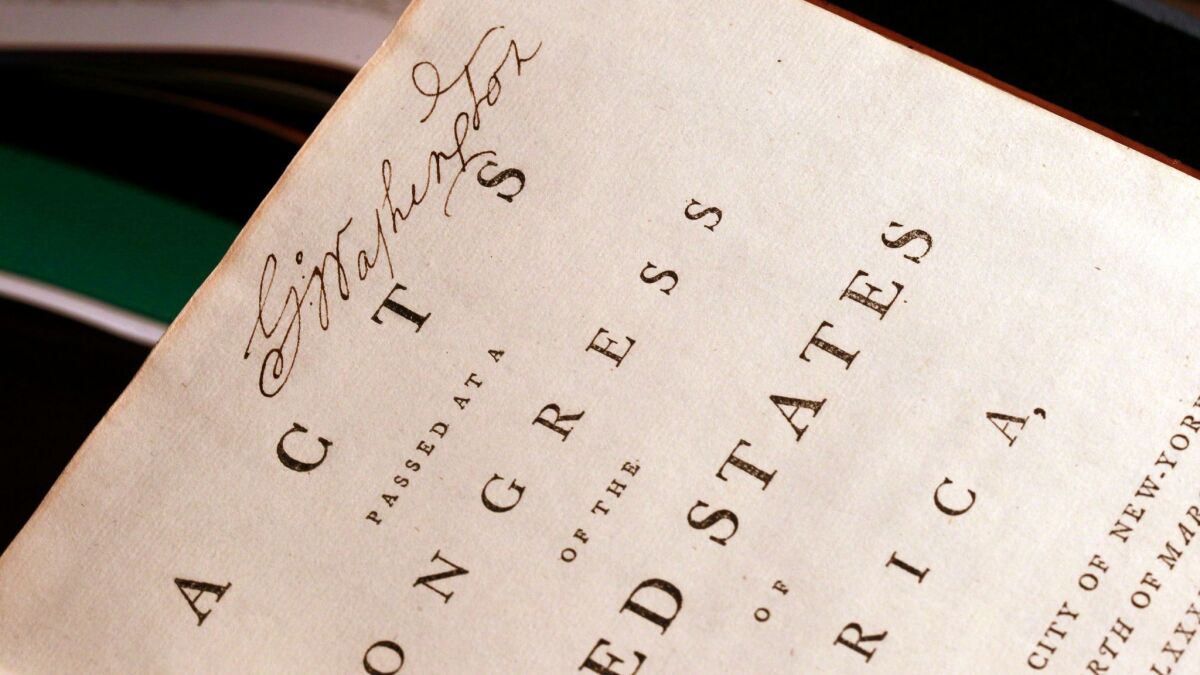 G:Waſhington
ACTS
PASSED AT A
ONGRESS
OF THE
ED STATES
OF
RICA,
CITY OF NEW-YOR
RTH OF MAR
LXXX